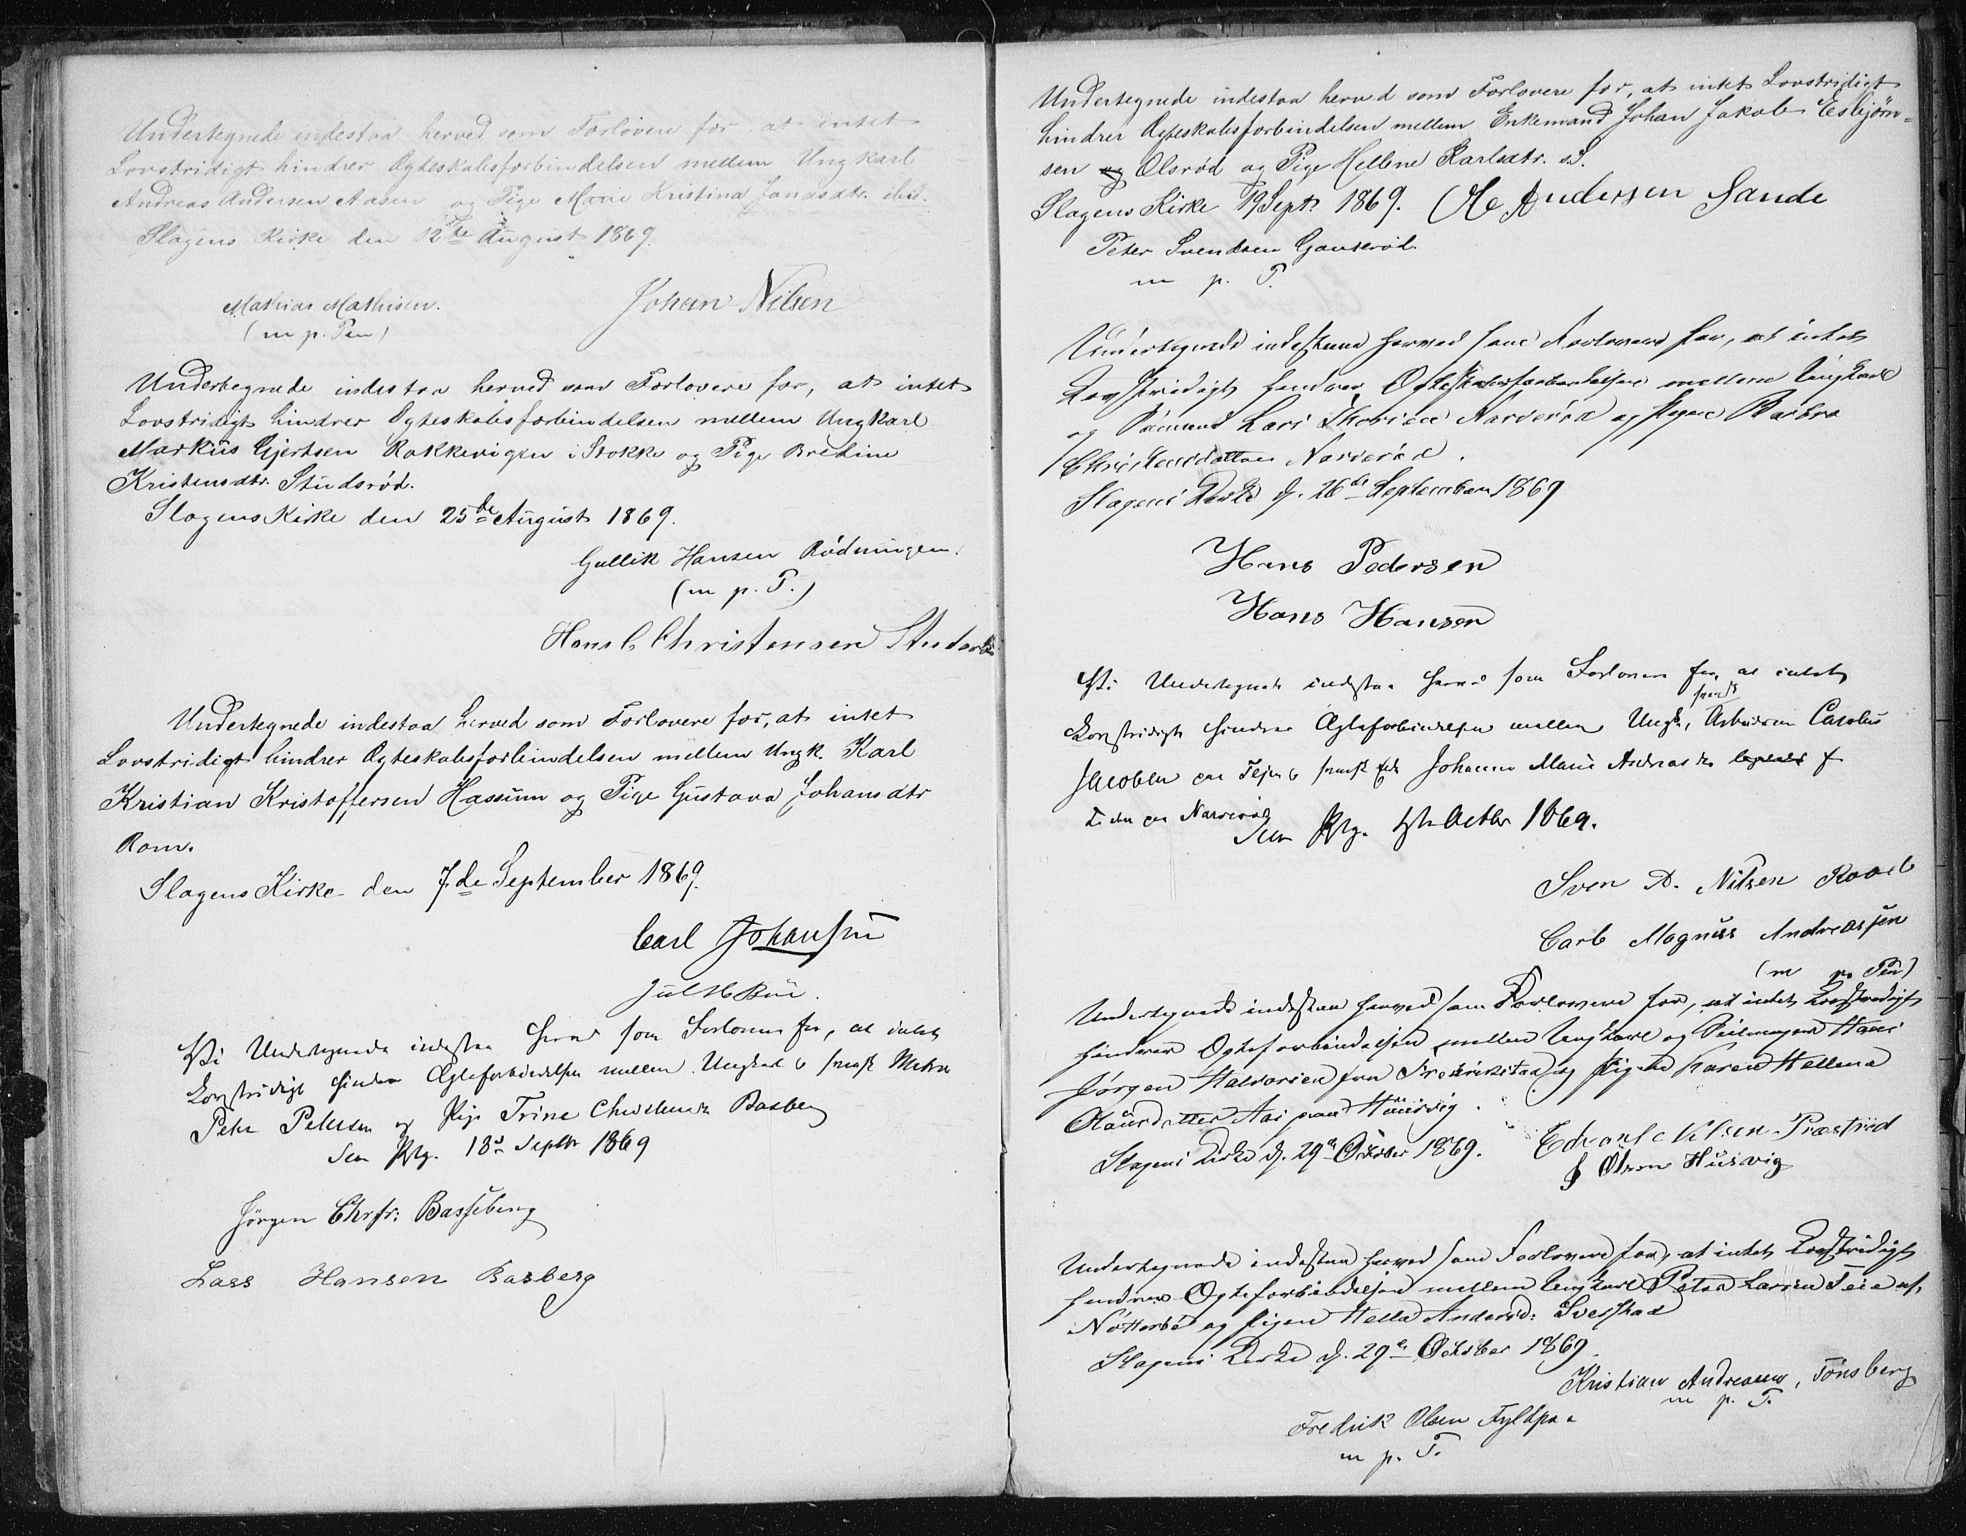 Undertegnede indestaa herved som Forlovere for at intet
Lovstridigt hindrer Ægteskabsforbindelsen mellem Ungkarl
Andreas Andersen Aasen og Pige Marie Kristina Jansdtr. ibid.
Slagens Kirke den 12te August 1869.
Mathias Mathisen. Johan Nilsen
(m. p. Pen)
Undertegnede indestaa herved som Forlovere for, at intet
Lovstridigt hindrer Ægteskabsforbindelsen mellem Ungkarl
Markus Gjertsen Rakkevigen i Stokke og Pige Bredine
Kristensdtr. Studsrød.
Slagens Kirke den 25de August 1869.
Gullik Hansen Rødningen.
(m. p. P.)
Hans C Christensen
Undertegnede indestaa herved som Forlovere for, at intet
Lovstridigt hindrer Ægteskabsforbindelsen mellem Ungk. Karl
Kristian Kristoffersen Hassum og Pige Gustava Johansdtr
Rom.
Slagens Kirke den 7de September 1869.
Carl Johansen
Vi Undertegnede indestaa herved som Forlovere for, at intet
Lovstridigt hinder Ægteforbindelsen mellem Ungkarl
Peter Petersen og Pige Trine Basberg
18de Septbr 1869
Jörgen Chrfr: Basseberg
Lars Hansen Basberg
Undertegnede indestaa herved som Forlovere for, at intet Lovstridigt
hindrer Ægteskabsforbindelsen mellem Enkemand Johan Jakob Esbjørn-
sen og Olsrød og Pige Hellene Karlsdtr. s.S.
Slagens Kirke 19 Sept. 1869. Andersen Sande
Peter Svendsen Gauserød.
m. p. P.
Undertegnede indestaae herved som Forlovere for, at intet
Lovstridigt hindrer Ægteskabsforbindelsen mellem Ungkarl
og Sømand Lars Narverød og Pigen Barbra
Christensdatter Narverød.
Slagens Kirke d. 26de September 1869
Hans Pedersen
Hans Hansen
Vi Undertegnede indestaa herved som Forlovere for, at intet
Lovstridigt hindrer Ægteforbindelsen mellem Ungk, Arbeideren Carolus
Jacobsen paa Johanne Marie
paa Narverød
Octbr 1869.
Sven A. Nilsen
Carl Magnus Andreassen
(m p. Pen)
Undertegnede indestaae herved som Forlovere for, at intet Lovstridigt
hindrer Ægteforbindelsen mellem Ungkarl og Seilmager Hans
Jørgen Halvorsen fra Frederikstad og Pigen Karen Hellene
Olausdatter Aas paa Husvig.
Slagens Kirke d. 29de October 1869.
Olsen Husvig
Undertegnede indestaae herved som Forlovere for, at intet Lovstridigt
hindrer Ægteforbindelsen mellem Ungkarl Petter Larsen Teie af
Nøtterø og Pigen Hella Andersd:
Slagens Kirke d. 29de October 1869.
Kristian Andreasen, Tønsberg
m. p. P.
Fredrik Olsen Fyldpaa
m. p. P.